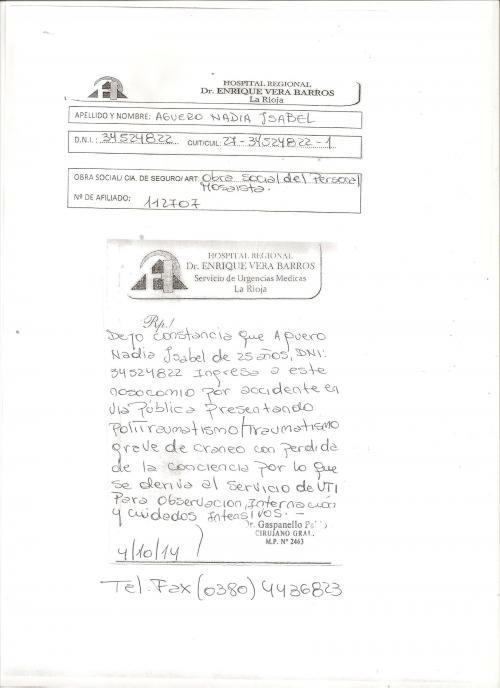 HOSPITAL REGIONAL
Dr. ENRIQUE VERA BARROS
La Rioja
APELLIDO Y NOMBRE: AGUERO NADIA ISABEL
D.N.I.: 34524822 CUIT/CUIL: 27-34524822-1
OBRA SOCIAL/ CIA. DE SEGURO/ ART: Obra Social del Personal
Mosaista.
Nº DE AFILIADO: 112707
HOSPITAL REGIONAL
Dr. ENRIQUE VERA BARROS
Servicio de Urgencias Medicas
La Rioja
Rp./
Dejo constancia que Aguero
Nadia Isabel de 25 años, DNI:
34524822 Ingresa a este
nosocomio por accidente en
via Pública Presentando
Politraumatismo/Traumatismo
grave de craneo con perdida
de la conciencia por lo que
se deriva al Servicio de UTI
Para Observacion, Internación
y cuidados Intensivos.-
Dr. Gaspanello
CIRUJANO GRAL.
M.P. Nº 2463
4/10/14
Tel. Fax (0380) 4436823